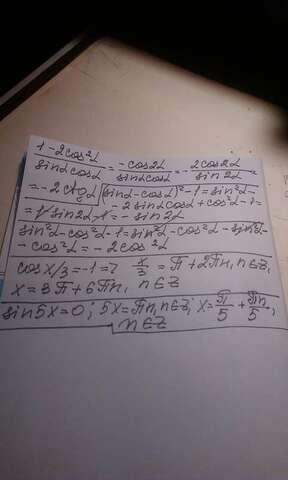 1-2cos²α / sinαcosα = -cos2α / sinαcosα = - 2cos2α / sin2α =
= -2ctg2α | (sinα-cosα)²-1 = sin²α -
- 2sinαcosα + cos²α - 1 =
= 1 - sin2α - 1 = - sin2α
sin²α - cos²α - 1 = sin²α - cos²α - sin²α -
- cos²α = - 2cos²α
cos x/3 = -1 => x/3 = π + 2πn, n∈Z,
x = 3π + 6πn, n∈Z
sin5x = 0; 5x = πn, n∈Z; x = π/5 + πn/5,
n∈Z